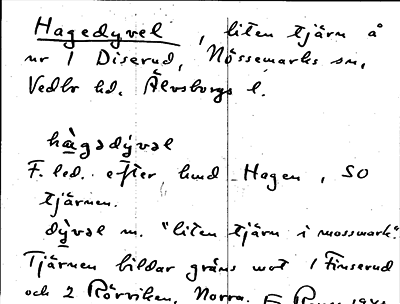 Hagedyvel, liten tjärn å
nr 1 Diserud, Nössemarks sn,
Vedbo hd. Älvsborgs l.
hàgədy̆vəl
F. led. efter hmd Hagen, SO
tjärnen.
dy̆vəl m. "liten tjärn i mossmark".
Tjärnen bildar gräns mot 1 Finserud
och 2 Rörviken, Norra.